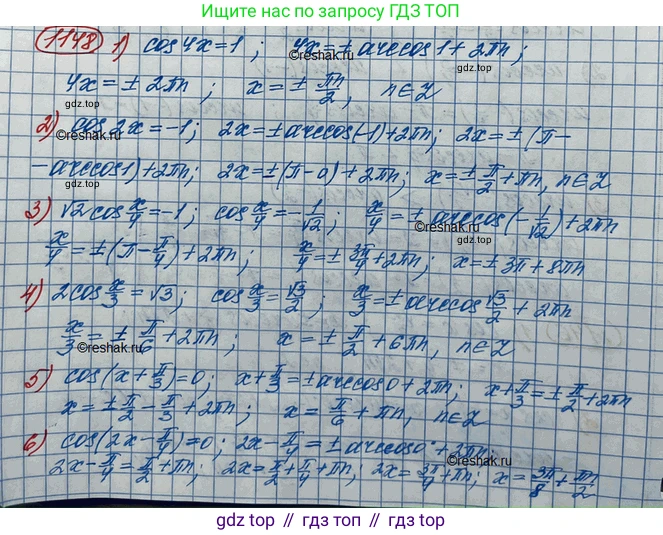 Ищите ответ по запросу ГДЗ ТОП
1148 1) cos4x=1; 4x=±arccos1+2πn;
4x=±2πn; x=±πn/2, n∈Z
2) cos2x=-1; 2x=±arccos(-1)+2πn; 2x=±(π-
-arccos1)+2πn; 2x=±(π-0)+2πn; x=±π/2+πn, n∈Z
3) √2cos x/4=-1; cos x/4=-1/√2; x/4=±arccos(-1/√2)+2πn
x/4=±(π-π/4)+2πn; x/4=±3π/4+2πn; x=±3π+8πn
4) 2cos x/3=√3; cos x/3=√3/2; x/3=±arccos √3/2+2πn
x/3=±π/6+2πn; x=±π/2+6πn, n∈Z
5) cos(x+π/3)=0; x+π/3=±arccos0+2πn; x+π/3=±π/2+2πn
x=±π/2-π/3+2πn; x=π/6+πn, n∈Z
6) cos(2x-π/4)=0; 2x-π/4=±arccos0+2πn;
2x-π/4=π/2+πn; 2x=π/2+π/4+πn; 2x=3π/4+πn; x=3π/8+πn/2
©reshak.ru
gdz.top
gdz top // гдз топ // gdz.top